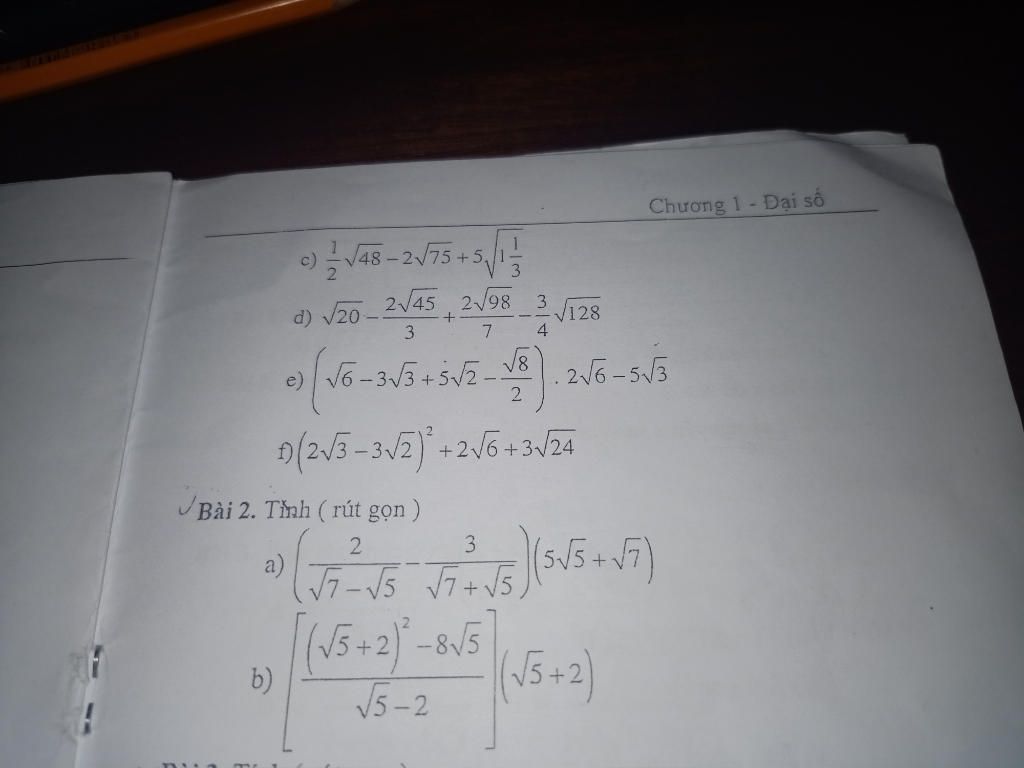 Chương 1 - Đại số
c) \frac{1}{2}\sqrt{48} - 2\sqrt{75} + 5\sqrt{1\frac{1}{3}}
d) \sqrt{20} - \frac{2\sqrt{45}}{3} + \frac{2\sqrt{98}}{7} - \frac{3}{4}\sqrt{128}
e) \left(\sqrt{6} - 3\sqrt{3} + 5\sqrt{2} - \frac{\sqrt{8}}{2}\right) . 2\sqrt{6} - 5\sqrt{3}
f) \left(2\sqrt{3} - 3\sqrt{2}\right)^2 + 2\sqrt{6} + 3\sqrt{24}
Bài 2. Tính ( rút gọn )
a) \left(\frac{2}{\sqrt{7} - \sqrt{5}} - \frac{3}{\sqrt{7} + \sqrt{5}}\right)\left(5\sqrt{5} + \sqrt{7}\right)
b) \left[\frac{\left(\sqrt{5} + 2\right)^2 - 8\sqrt{5}}{\sqrt{5} - 2}\right]\left(\sqrt{5} + 2\right)